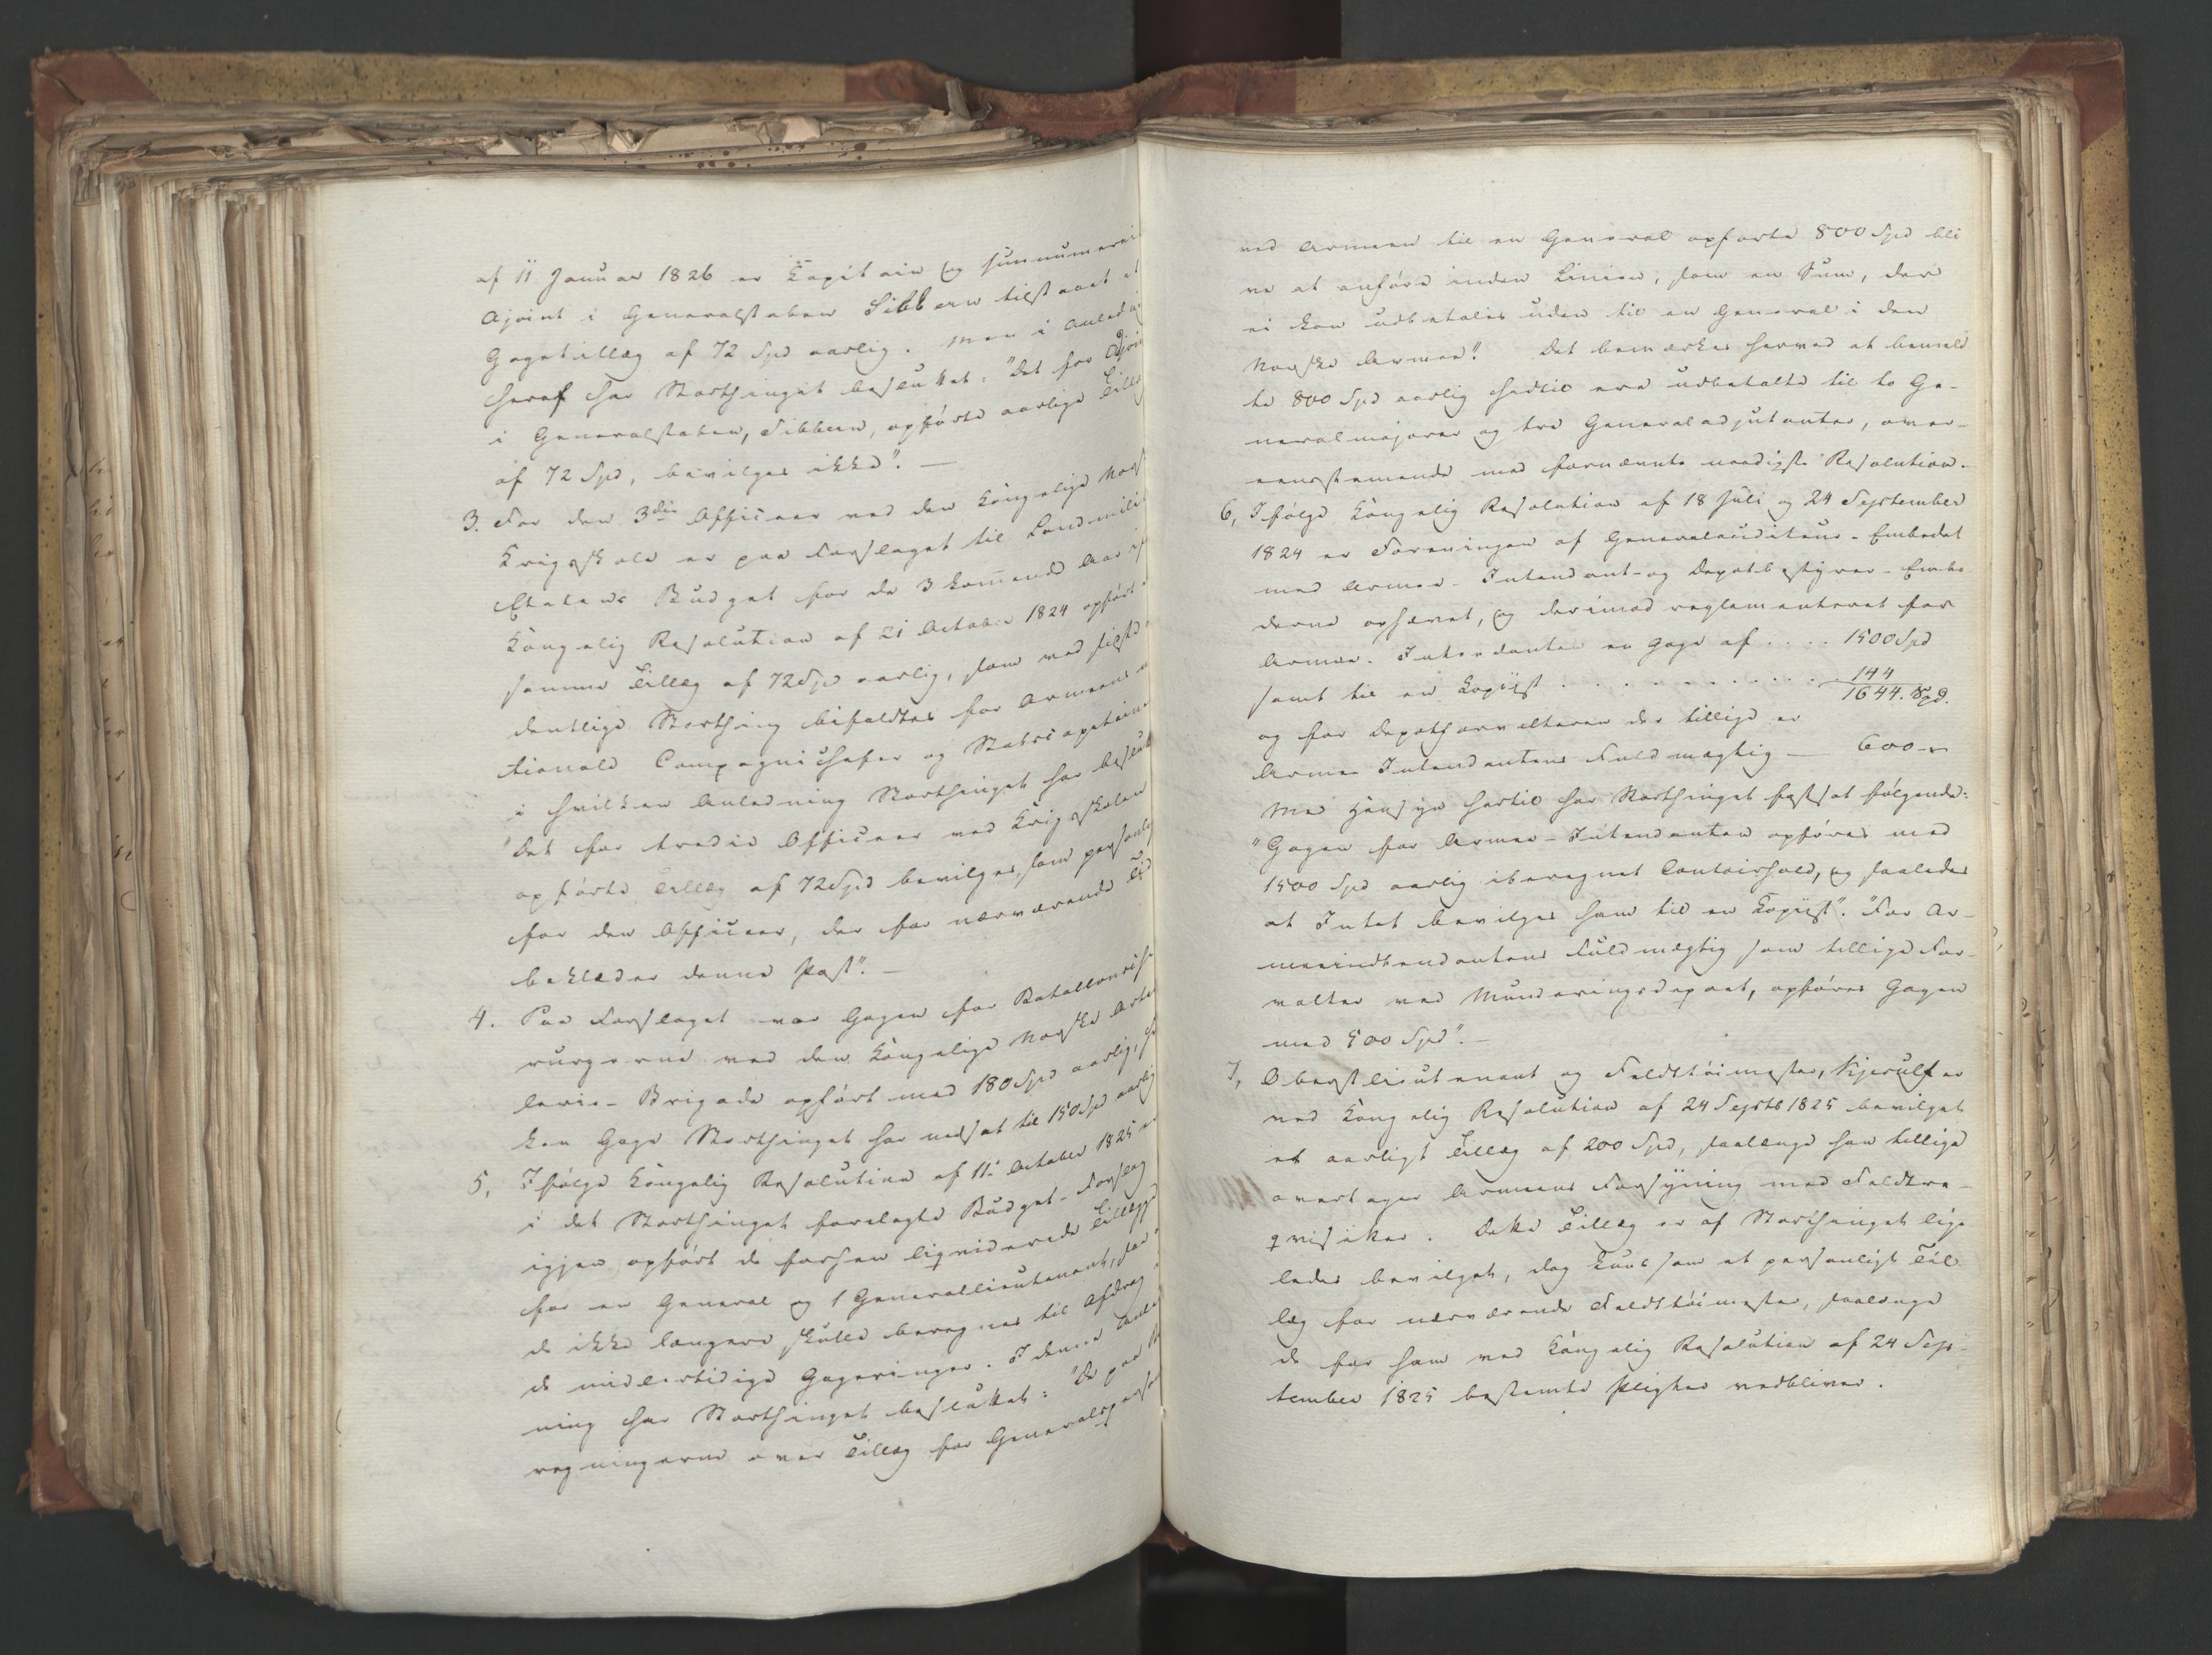 af 11 Januar 1826 er Kapitain og surnumerair
Ajoint i Generalstaben Sibbern tilstaaet et
Gagetillæg af 72 Spd aarlig. Men i Anledning
heraf har Storthinget besluttet: "Det for Adjoint
i Generalstaben, Sibbern, opførte aarlige Tillæg
af 72 Spd, bevilges ikke". —
3. For den 3die Officeer ved den Kongelige Norske
Krigsskole er paa Forslaget til Landmilitair
Etatens Budget for de 3 kommende Aar efter
Kongelig Resolution af 21 October 1824 opført
samme Tillæg af 72 Spd aarlig, som ved sidste
dentlige Storthing bifaldtes for Armeens
tionale Compagniechefer og Stabscapitainer
i hvilken Anledning Storthinget har besluttet
"Det for tredie Officeer ved Krigsskolen
opførte Tillæg af 72 Spd bevilges, som personligt
for den Officeer, der for nærværende Tid
beklæder denne Post". —
4. Paa Forslaget var Gagen for Bataillonschi-
rurgerne ved den Kongelige Norske Artil-
lerie-Brigade opført med 180 Spd aarlig, hvil-
ken Gage Storthinget har nedsat til 150 Spd aarlig
5, Ifølge Kongelig Resolution af 11te October 1825 er
i det Storthinget forelagte Budget-Forslag
igjen opført de forhen liqviderede Tillægge
for en General og 1 Generallieutenant, saa
de ikke længere skulle beregnes til Afdrag
de midlertidige Gageringer. I denne Anled-
ning har Storthinget besluttet: "De paa
regningerne over Tillæg for Generalspersoner
ved Armeen til en General opførte 800 Spd bli
ve at anføre inden Linien, som en Sum, der
ei kan udbetales uden til en General i den
Norske Armee". Det bemærkes herved at bemeld
te 800 Spd aarlig hidtil ere udbetalte til to Ge-
neralmajorer og tre Generaladjutanter, over-
eensstemmende med fornævnte naadigste Resolution.
6, Ifølge Kongelig Resolution af 18 Juli og 24 September
1824 er Foreningen af Generalauditeur-Embedet
med Armee-Intendant- og Depotbestyrer-Embe
derne ophævet, og derimod reglementeret for
Armee-Intendanten en Gage af . . . . 1500 Spd
samt til en Kopiist . . . . . . . . . . . . 144
1644. Spd.
og for Depotforvalteren der tillige er
Armee Intendantens Fuldmægtig — 600 -"-
Med Hensyn hertil har Storthinget fastsat følgende:
"Gagen for Armee-Intendanten opføres med
1500 Spd aarlig iberegnet Contoirhold, og saaledes
at Intet bevilges ham til en Kopiist". "For Ar-
meeintendantens Fuldmægtig som tillige For-
valter ved Munderingsdepoet, opføres Gagen
med 500 Spd". —
7, Oberstlieutenant og Feldttøimester, Kjerulf er
ved Kongelig Resolution af 24 Septb 1825 bevilget
et aarligt Tillæg af 200 Spd, saalænge han tillige
overtager Armeens Forsyning med Feldtre-
qvisiter. Dette Tillæg er af Storthinget lige
ledes bevilget, dog kuns som et personligt Til
læg for nærværende Feldttøimester, saalænge
de for ham ved Kongelig Resolution af 24 Sep-
tember 1825 bestemte Pligter vedbliver.